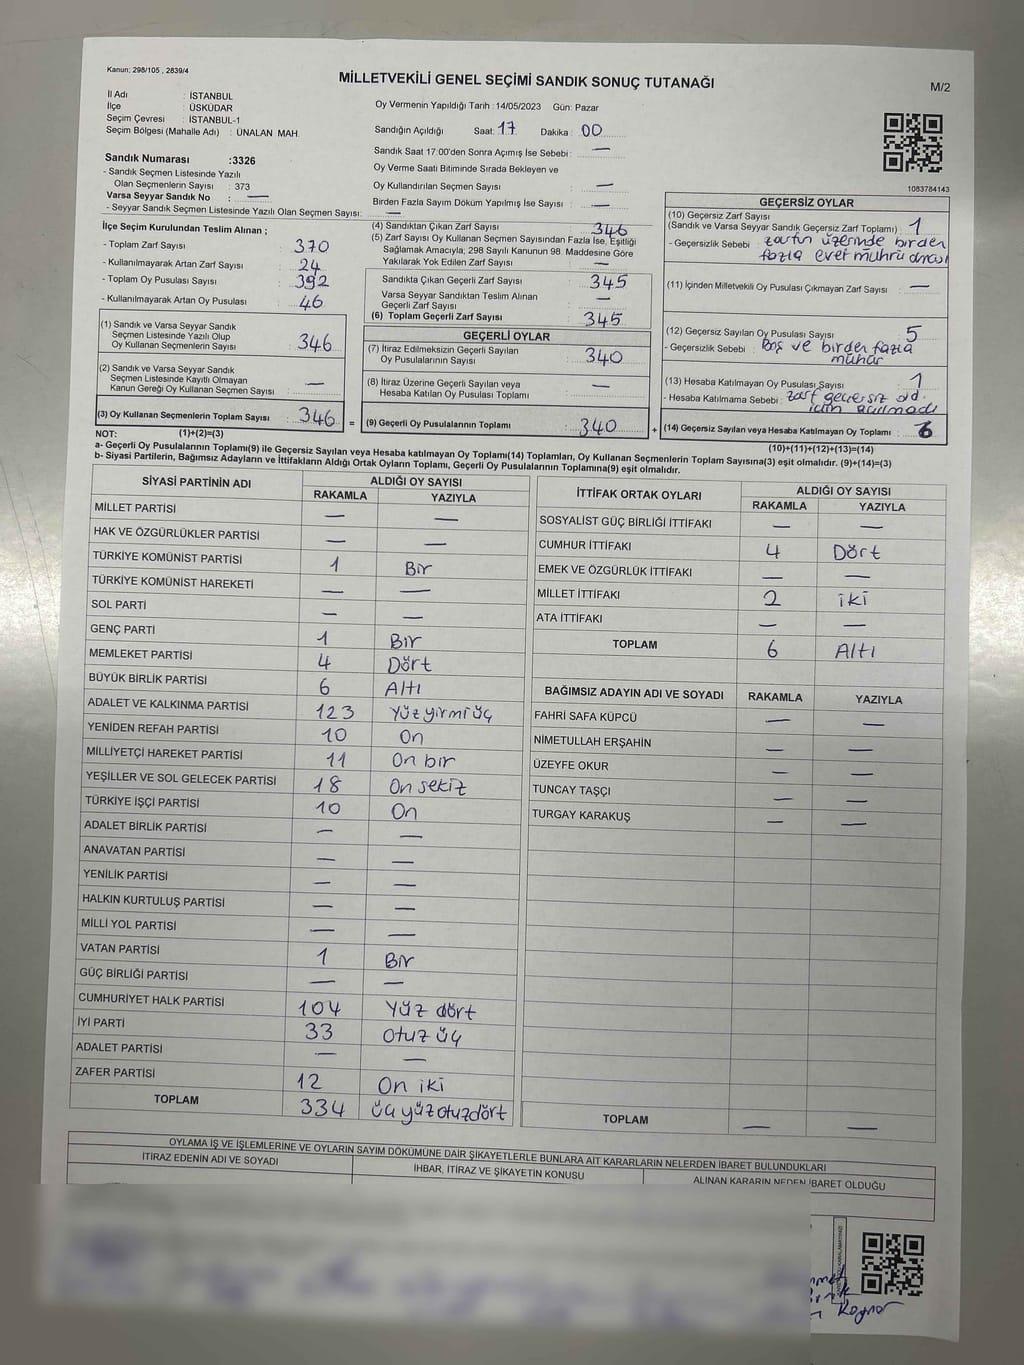 Kanun: 298/105 , 2839/4
MİLLETVEKİLİ GENEL SEÇİMİ SANDIK SONUÇ TUTANAĞI
M/2
İl Adı : İSTANBUL
İlçe : ÜSKÜDAR
Seçim Çevresi : İSTANBUL-1
Seçim Bölgesi (Mahalle Adı) : ÜNALAN MAH.
Sandık Numarası :3326
- Sandık Seçmen Listesinde Yazılı
Olan Seçmenlerin Sayısı : 373
Varsa Seyyar Sandık No : —
- Seyyar Sandık Seçmen Listesinde Yazılı Olan Seçmen Sayısı: —
Oy Vermenin Yapıldığı Tarih : 14/05/2023 Gün: Pazar
Sandığın Açıldığı Saat: 17 Dakika : 00
Sandık Saat 17:00'den Sonra Açımış İse Sebebi : —
Oy Verme Saati Bitiminde Sırada Bekleyen ve
Oy Kullandırılan Seçmen Sayısı : —
Birden Fazla Sayım Döküm Yapılmış İse Sayısı : —
1083784143
İlçe Seçim Kurulundan Teslim Alınan ;
- Toplam Zarf Sayısı : 370
- Kullanılmayarak Artan Zarf Sayısı : 24
- Toplam Oy Pusulası Sayısı : 392
- Kullanılmayarak Artan Oy Pusulası : 46
(1) Sandık ve Varsa Seyyar Sandık
Seçmen Listesinde Yazılı Olup
Oy Kullanan Seçmenlerin Sayısı : 346
(2) Sandık ve Varsa Seyyar Sandık
Seçmen Listesinde Kayıtlı Olmayan
Kanun Gereği Oy Kullanan Seçmen Sayısı : —
(3) Oy Kullanan Seçmenlerin Toplam Sayısı : 346 =
(4) Sandıktan Çıkan Zarf Sayısı : 346
(5) Zarf Sayısı Oy Kullanan Seçmen Sayısından Fazla İse, Eşitliği
Sağlamak Amacıyla, 298 Sayılı Kanunun 98. Maddesine Göre
Yakılarak Yok Edilen Zarf Sayısı : —
Sandıkta Çıkan Geçerli Zarf Sayısı : 345
Varsa Seyyar Sandıktan Teslim Alınan
Geçerli Zarf Sayısı : —
(6) Toplam Geçerli Zarf Sayısı : 345
GEÇERLİ OYLAR
(7) İtiraz Edilmeksizin Geçerli Sayılan
Oy Pusulalarının Sayısı : 340
(8) İtiraz Üzerine Geçerli Sayılan veya
Hesaba Katılan Oy Pusulaları Toplamı : —
(9) Geçerli Oy Pusulalarının Toplamı : 340 +
GEÇERSİZ OYLAR
(10) Geçersiz Zarf Sayısı
(Sandık ve Varsa Seyyar Sandık Geçersiz Zarf Toplamı) : 1
- Geçersizlik Sebebi : zarfın üzerinde birden
fazla evet mührü
(11) İçinden Milletvekili Oy Pusulası Çıkmayan Zarf Sayısı : —
(12) Geçersiz Sayılan Oy Pusulası Sayısı : 5
- Geçersizlik Sebebi : Boş ve birden fazla
mühür
(13) Hesaba Katılmayan Oy Pusulası Sayısı : 1
- Hesaba Katılmama Sebebi : zarf geçersiz old.
için açılmadı
(14) Geçersiz Sayılan veya Hesaba Katılmayan Oy Toplamı : 6
NOT: (1)+(2)=(3) (10)+(11)+(12)+(13)=(14)
a- Geçerli Oy Pusulalarının Toplamı(9) ile Geçersiz Sayılan veya Hesaba katılmayan Oy Toplamı(14) Toplamları, Oy Kullanan Seçmenlerin Toplam Sayısına(3) eşit olmalıdır. (9)+(14)=(3)
b- Siyasi Partilerin, Bağımsız Adayların ve İttifakların Aldığı Ortak Oyların Toplamı, Geçerli Oy Pusulalarının Toplamına(9) eşit olmalıdır.
SİYASİ PARTİNİN ADI ALDIĞI OY SAYISI
RAKAMLA YAZIYLA
MİLLET PARTİSİ — —
HAK VE ÖZGÜRLÜKLER PARTİSİ — —
TÜRKİYE KOMÜNİST PARTİSİ 1 Bir
TÜRKİYE KOMÜNİST HAREKETİ — —
SOL PARTİ — —
GENÇ PARTİ 1 Bir
MEMLEKET PARTİSİ 4 Dört
BÜYÜK BİRLİK PARTİSİ 6 Altı
ADALET VE KALKINMA PARTİSİ 123 Yüz yirmi üç
YENİDEN REFAH PARTİSİ 10 On
MİLLİYETÇİ HAREKET PARTİSİ 11 On bir
YEŞİLLER VE SOL GELECEK PARTİSİ 18 On sekiz
TÜRKİYE İŞÇİ PARTİSİ 10 On
ADALET BİRLİK PARTİSİ — —
ANAVATAN PARTİSİ — —
YENİLİK PARTİSİ — —
HALKIN KURTULUŞ PARTİSİ — —
MİLLİ YOL PARTİSİ — —
VATAN PARTİSİ 1 Bir
GÜÇ BİRLİĞİ PARTİSİ — —
CUMHURİYET HALK PARTİSİ 104 Yüz dört
İYİ PARTİ 33 Otuz üç
ADALET PARTİSİ — —
ZAFER PARTİSİ 12 On iki
TOPLAM 334 üç yüz otuzdört
İTTİFAK ORTAK OYLARI ALDIĞI OY SAYISI
RAKAMLA YAZIYLA
SOSYALİST GÜÇ BİRLİĞİ İTTİFAKI — —
CUMHUR İTTİFAKI 4 Dört
EMEK VE ÖZGÜRLÜK İTTİFAKI — —
MİLLET İTTİFAKI 2 iki
ATA İTTİFAKI — —
TOPLAM 6 Altı
BAĞIMSIZ ADAYIN ADI VE SOYADI RAKAMLA YAZIYLA
FAHRİ SAFA KÜPCÜ — —
NİMETULLAH ERŞAHİN — —
ÜZEYFE OKUR — —
TUNCAY TAŞÇI — —
TURGAY KARAKUŞ — —
TOPLAM — —
OYLAMA İŞ VE İŞLEMLERİNE VE OYLARIN SAYIM DÖKÜMÜNE DAİR ŞİKAYETLERLE BUNLARA AİT KARARLARIN NELERDEN İBARET BULUNDUKLARI
İTİRAZ EDENİN ADI VE SOYADI İHBAR, İTİRAZ VE ŞİKAYETİN KONUSU ALINAN KARARIN NEDEN İBARET OLDUĞU